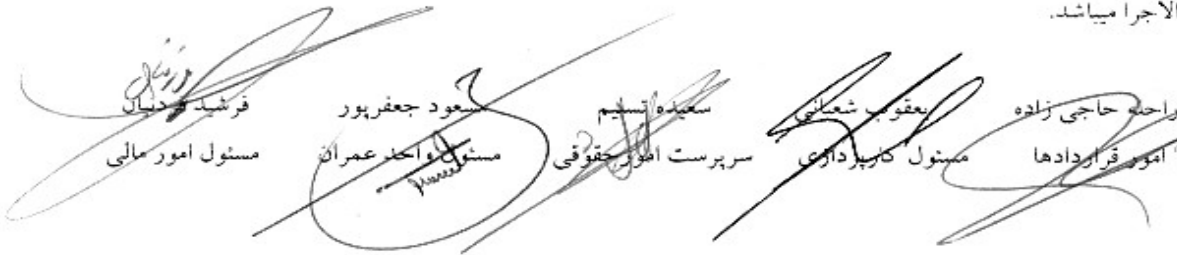 الاجرا میباشد.
راحله حاجی زاده یعقوب شعبانی سعیده تسلیم مسعود جعفرپور فرشید
امور قراردادها مسئول کارپردازی سرپرست امور حقوقی مسئول واحد عمران مسئول امور مالی